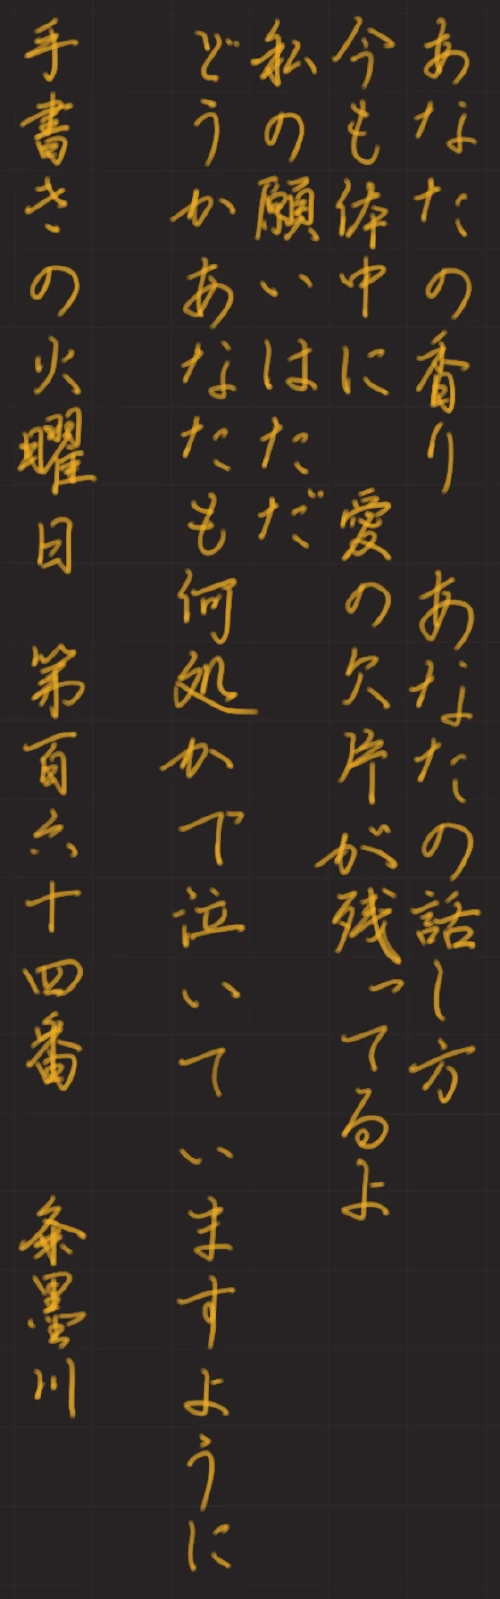 あなたの香り　あなたの話し方
今も体中に　愛の欠片が残ってるよ
私の願いはただ
どうかあなたも何処かで泣いていますように
手書きの火曜日　第百六十四番　粂墨川